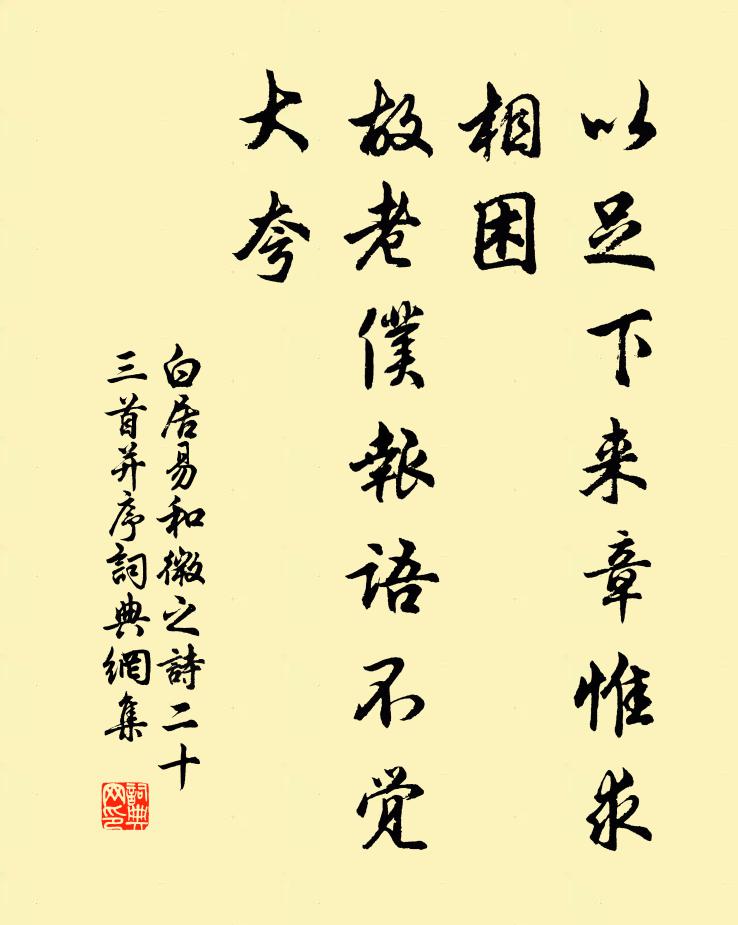 以足下来章惟求
相困
故老僕報語不覚
大夸
白居易和微之詩二十
三首并序詞典網集
詞典
网印